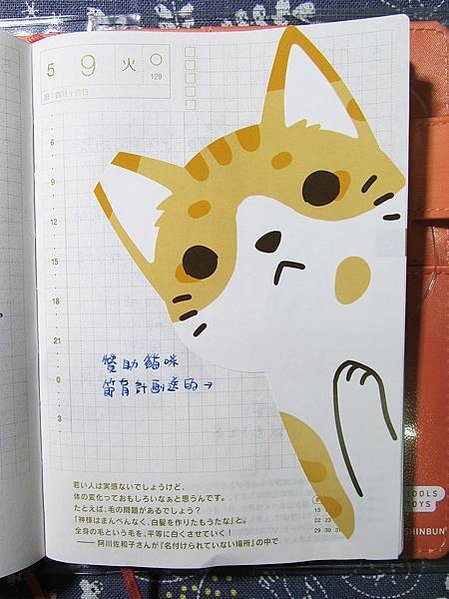 5 9 火
129
旧・四月十六日
6
9
12
15
18
21
0
3
贊助貓咪
節育計劃送的→
若い人は実感ないでしょうけど、
体の変化っておもしろいなぁと思うんです。
たとえば、毛の問題があるでしょう?
「神様はまんべんなく、白髪を作りたもうたな」と。
全身の毛という毛を、平等に白くさせていく!
——阿川佐和子さんが『名付けられていない場所』の中で
8
15
22 23
29 30 31
TOOLS
TOYS
SHINBUN